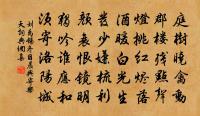 庭樹曉禽動
郡樓殘點聲
燈挑紅燼落
酒暖白光生
髮少嫌梳利
顏衰恨鏡明
獨吟誰應和
須寄洛陽城
劉禹錫冬日晨興寄樂
天詞典網集